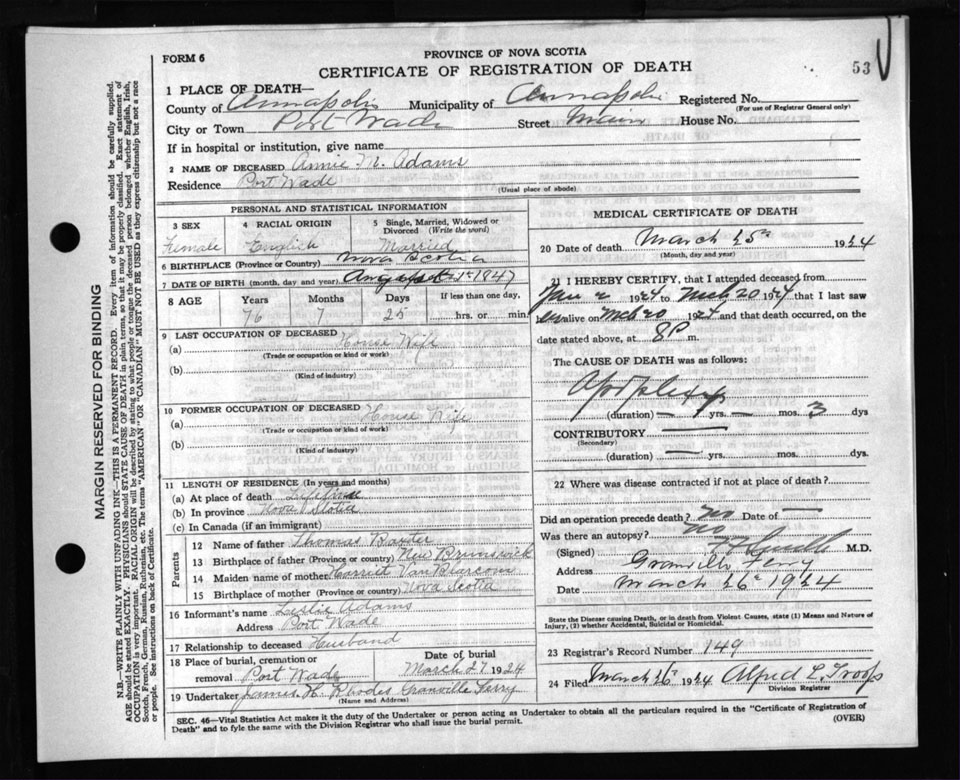 FORM 6
PROVINCE OF NOVA SCOTIA
CERTIFICATE OF REGISTRATION OF DEATH
53
1 PLACE OF DEATH—
County of Annapolis Municipality of Annapolis Registered No.
(For use of Registrar General only)
City or Town Port Wade Street Main House No.
If in hospital or institution, give name
2 NAME OF DECEASED Annie M. Adams
Residence Port Wade
(Usual place of abode)
PERSONAL AND STATISTICAL INFORMATION
3 SEX 4 RACIAL ORIGIN 5 Single, Married, Widowed or Divorced (Write the word)
Female English Married
6 BIRTHPLACE (Province or Country) Nova Scotia
7 DATE OF BIRTH (month, day and year) August 1st 1847
8 AGE Years Months Days If less than one day,
76 7 25 hrs. or min
9 LAST OCCUPATION OF DECEASED
(a) House Wife
(Trade or occupation or kind or work)
(b)
(Kind of industry)
10 FORMER OCCUPATION OF DECEASED
(a) House Wife
(Trade or occupation or kind of work)
(b)
(Kind of industry)
11 LENGTH OF RESIDENCE (In years and months)
(a) At place of death Lifetime
(b) In province Nova Scotia
(c) In Canada (if an immigrant)
Parents
12 Name of father Thomas Baxter
13 Birthplace of father (Province or country) New Brunswick
14 Maiden name of mother Harriet VanBlarcom
15 Birthplace of mother (Province or country) Nova Scotia
16 Informant's name Leslie Adams
Address Port Wade
17 Relationship to deceased Husband
18 Place of burial, cremation or removal Port Wade Date of burial March 27 1924
19 Undertaker James H. Rhodes Granville Ferry
(Name and Address)
MEDICAL CERTIFICATE OF DEATH
20 Date of death March 25th 1924
(Month, day and year)
21 I HEREBY CERTIFY, that I attended deceased from
Jan 2 1924 to Mch 20 1924 that I last saw
alive on Mch 20 1924 and that death occurred, on
date stated above, at 8 P m.
The CAUSE OF DEATH was as follows:
Apoplexy
(duration) — yrs. — mos. 3 dys
CONTRIBUTORY —
(Secondary)
(duration) — yrs. mos. dys
22 Where was disease contracted if not at place of death?
Did an operation precede death? no Date of —
Was there an autopsy? no
(Signed) M.D.
Address Granville Ferry
Date March 26th 1924
State the Disease causing Death, or in death from Violent Causes, state (1) Means and Nature of Injury, (2) whether Accidental, Suicidal or Homicidal.
23 Registrar's Record Number 149
24 Filed March 26th 1924 Alfred L. Troop
Division Registrar
SEC. 46—Vital Statistics Act makes it the duty of the Undertaker or person acting as Undertaker to obtain all the particulars required in the "Certificate of Registration of
Death" and to fyle the same with the Division Registrar who shall issue the burial permit. (OVER)
MARGIN RESERVED FOR BINDING
N.B.—WRITE PLAINLY WITH UNFADING INK—THIS IS A PERMANENT RECORD. Every item of information should be carefully supplied.
AGE should be stated EXACTLY. PHYSICIANS should STATE CAUSE OF DEATH in plain terms, so that it may be properly classified. Exact statement of
OCCUPATION is very important. RACIAL ORIGIN will be described by stating to what people or tongue the deceased person belonged, whether English, Irish,
Scotch, French, German, Russian, Ruthenian, etc. The terms "AMERICAN" OR "CANADIAN" MUST NOT BE USED as they express citizenship but not a race
or people. See instructions on back of Certificate.